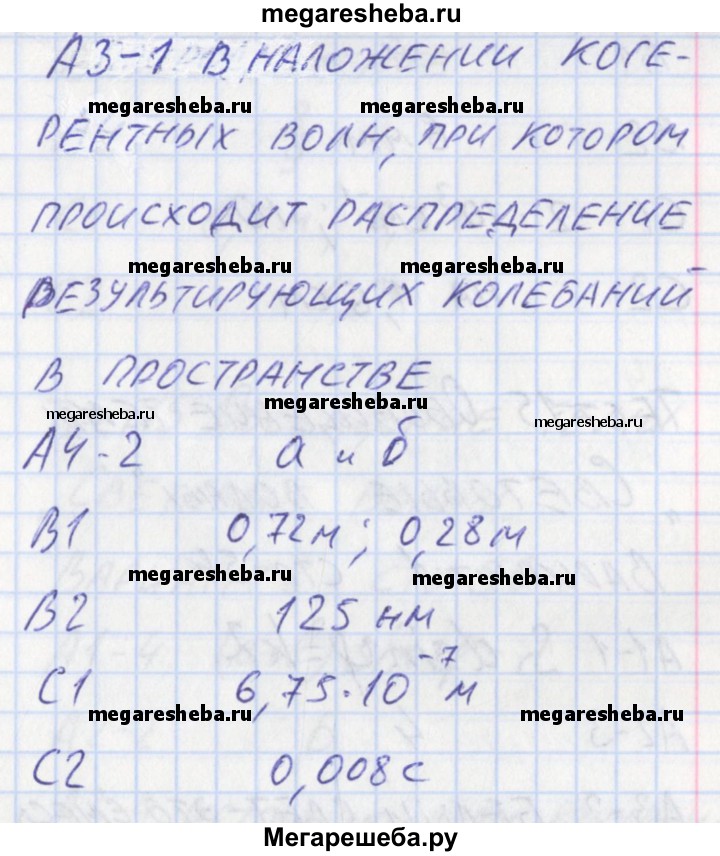 megaresheba.ru
А3-1 В НАЛОЖЕНИИ КОГЕ-
megaresheba.ru megaresheba.ru
РЕНТНЫХ ВОЛН, ПРИ КОТОРОМ
ПРОИСХОДИТ РАСПРЕДЕЛЕНИЕ
megaresheba.ru megaresheba.ru
РЕЗУЛЬТИРУЮЩИХ КОЛЕБАНИЙ
В ПРОСТРАНСТВЕ
megaresheba.ru megaresheba.ru megaresheba.ru
А4-2 а и б
В1 0,72м; 0,28м
megaresheba.ru megaresheba.ru
В2 125 нм
С1 6,75·10⁻⁷ м
megaresheba.ru megaresheba.ru
С2 0,008 с
Мегарешеба.ру